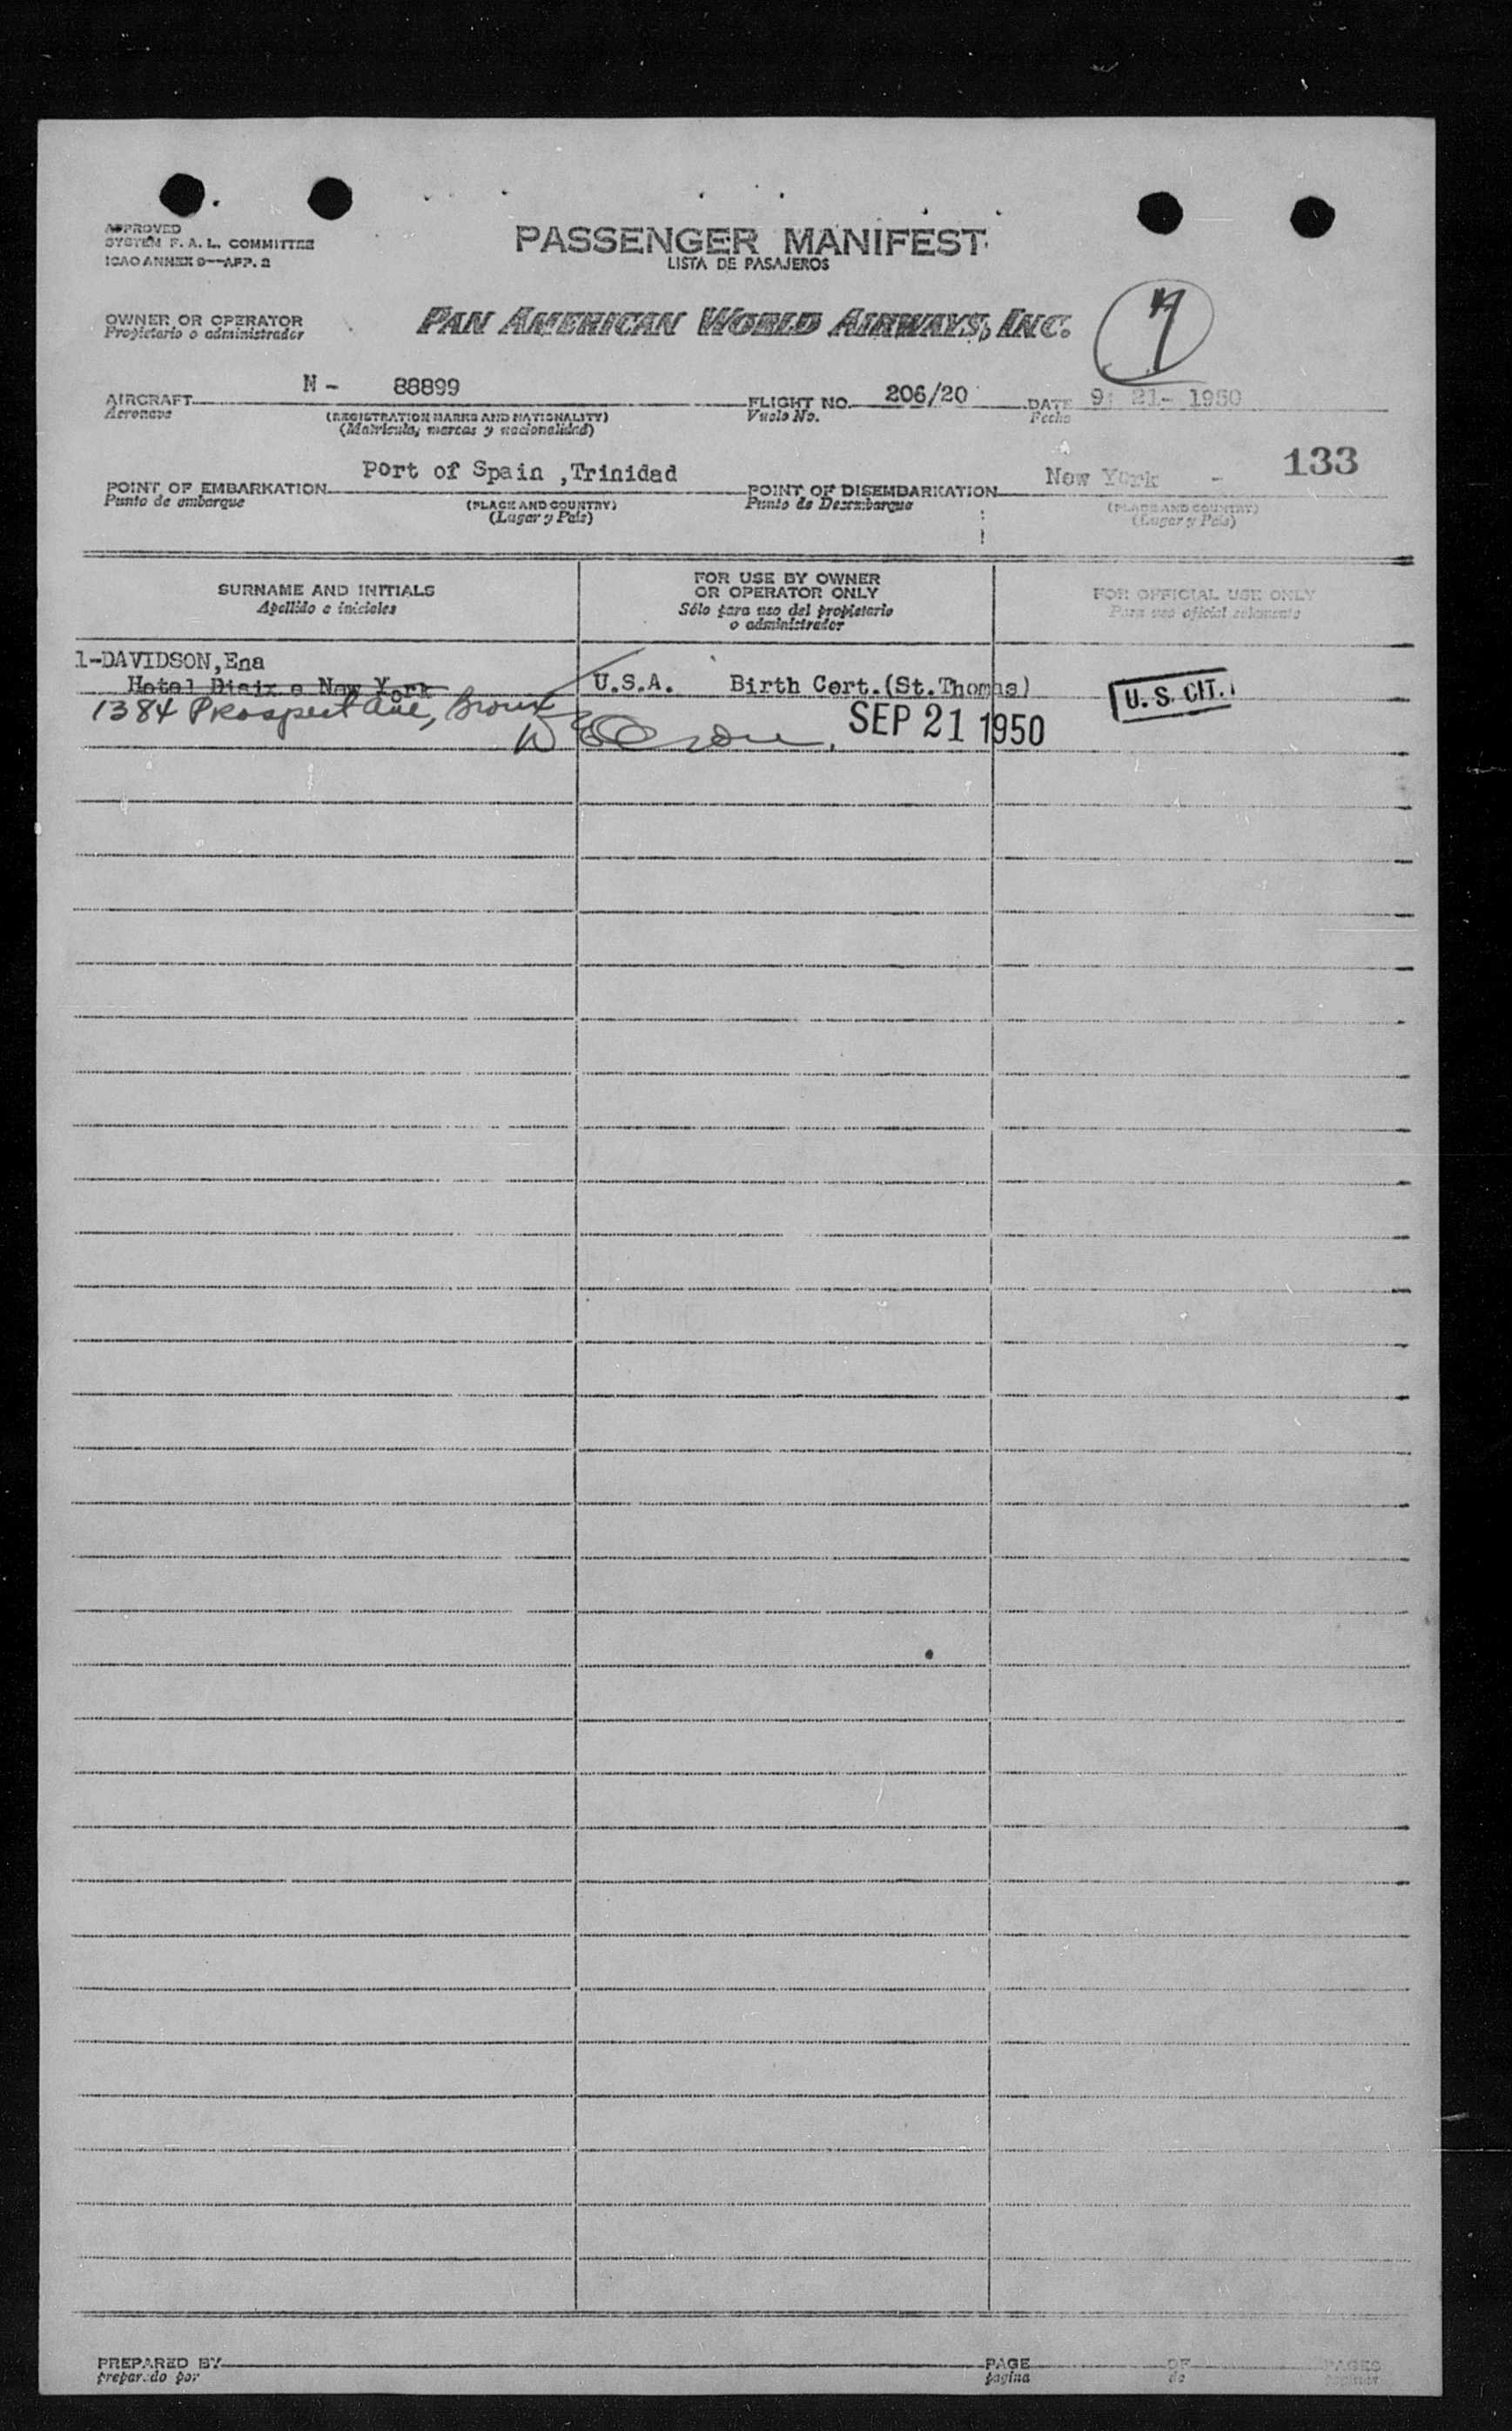 APPROVED
SYSTEM F. A. L. COMMITTEE
ICAO ANNEX 9—APP. 2
PASSENGER MANIFEST
LISTA DE PASAJEROS
OWNER OR OPERATOR
Propietario o administrador
PAN AMERICAN WORLD AIRWAYS, INC.
AIRCRAFT N - 88899
Aeronave
(REGISTRATION MARKS AND NATIONALITY)
(Matricula, marcas y nacionalidad)
FLIGHT NO. 206/20
Vuelo No.
DATE 9- 21- 1950
Fecha
133
POINT OF EMBARKATION Port of Spain ,Trinidad
Punto de embarque
(PLACE AND COUNTRY)
(Lugar y País)
POINT OF DISEMBARKATION New York -
Punto de Desembarque
(PLACE AND COUNTRY)
(Lugar y País)
SURNAME AND INITIALS
Apellido e iniciales
FOR USE BY OWNER
OR OPERATOR ONLY
Sólo para uso del propietario
o administrador
FOR OFFICIAL USE ONLY
Para uso oficial solamente
1-DAVIDSON,Ena
Hotel New York
U.S.A. Birth Cert.(St.Thomas)
U. S. CIT.
1384 Prospect Ave, Bronx
SEP 21 1950
PREPARED BY
preparado por
PAGE OF PAGES
pagina de paginas